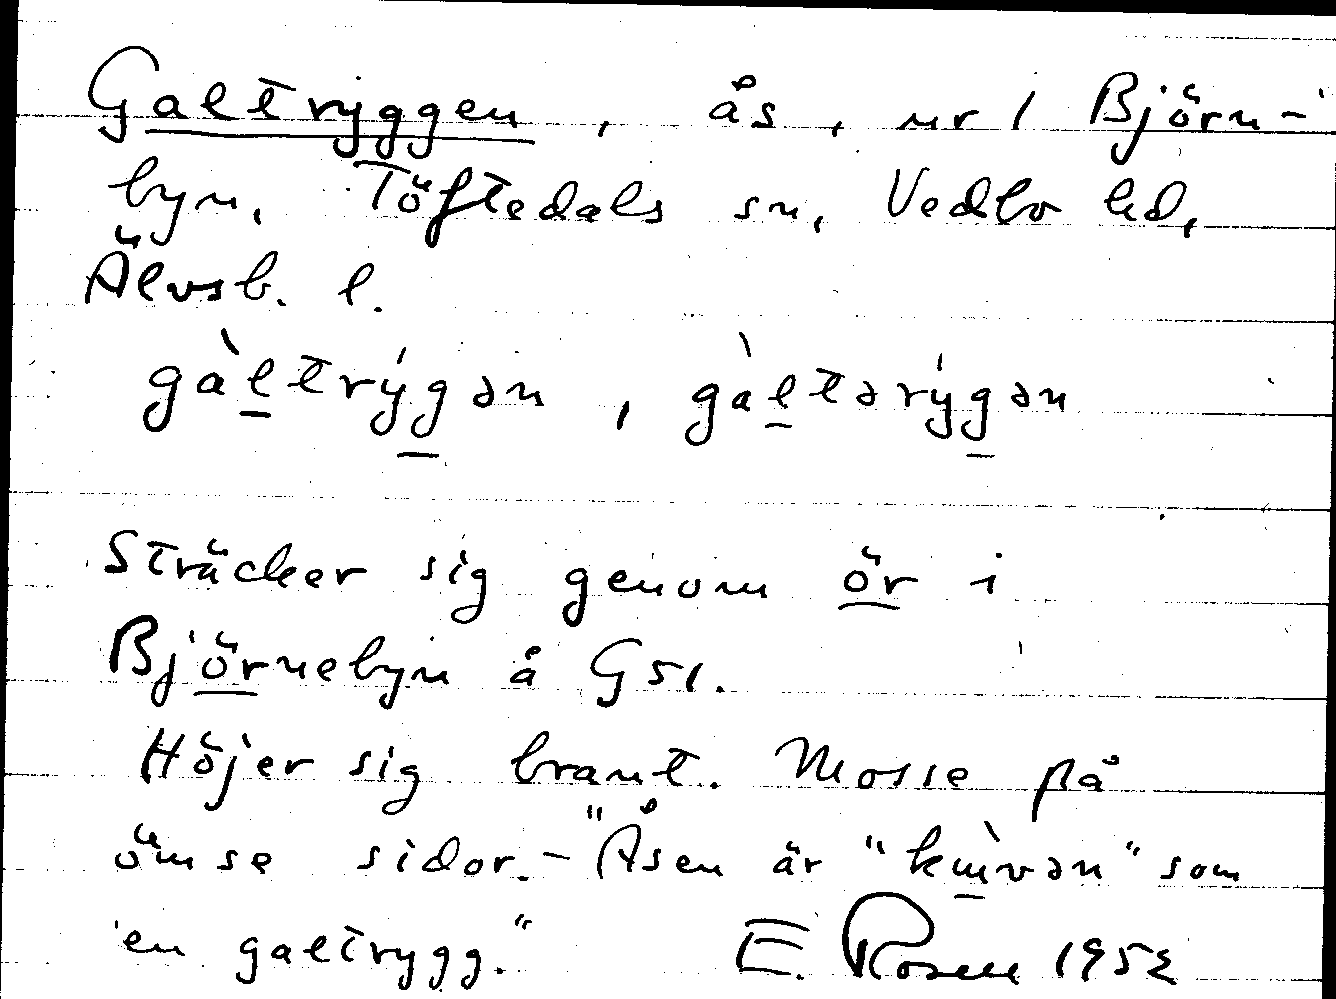 Galtryggen, ås, nr 1 Björn-
byn, Töftedals sn, Vedbo hd,
Älvsb. l.
gàltrýgən, gàltərýgən
Sträcker sig genom ör i
Björnebyn å G51.
Höjer sig brant. Mosse på
ömse sidor. - "Åsen är "kùvən" som
en galtrygg." E. Rosen 1952